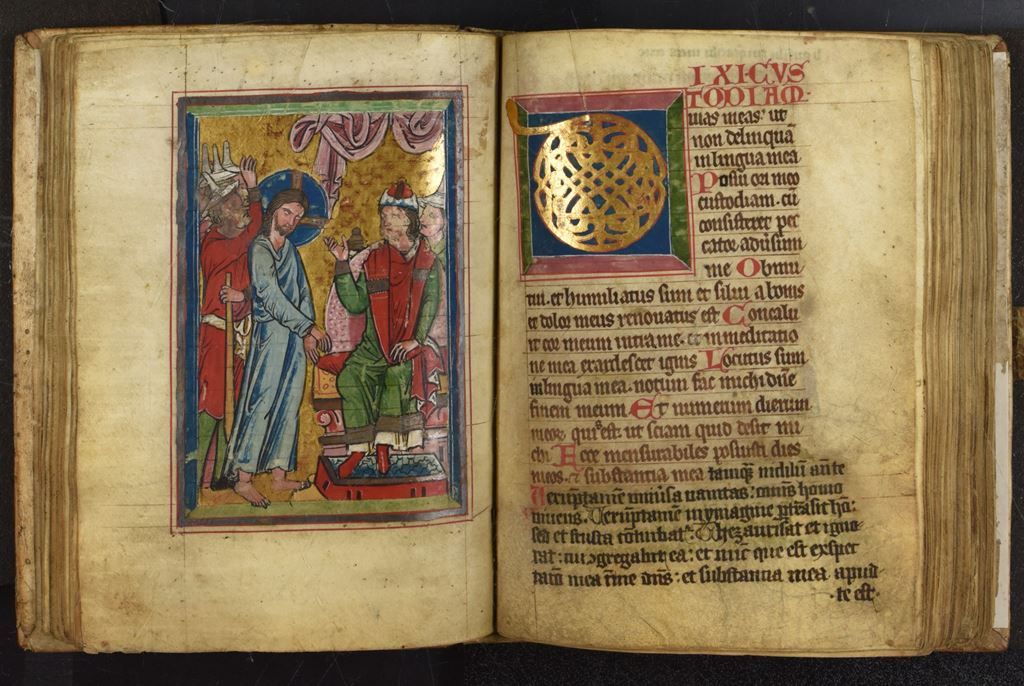 DIXI CVS
TODIAM·
uias meas ut
non delinquā
in lingua mea
Posui ori meo
custodiam. cū
consisteret pec
cator aduersum
me Obmu
tui. et humiliatus sum et silui a bonis
et dolor meus renouatus est Concalu
it cor meum intra me. et in meditatio
ne mea exardescet ignis Locutus sum
in lingua mea. notum fac michi dn̄e
finem meum Et numerum dierum
meor̄ qui est. ut sciam quid desit mi
chi Ecce mensurabiles posuisti dies
meos. et substantia mea tamqꝫ nichilū ante te
Veruptam̄e uniu̾sa uanitas: om̄is homo
uiuens. Veruptam̄e in ymagine ptrāsit hō:
sed et frusta cōturbat᷑: Thezaurisat et igno
rat: cui ꝯgregabit ea: et nūc que est exspec
tatio mea n̄ne dn̄s: et substantia mea apud
te est·